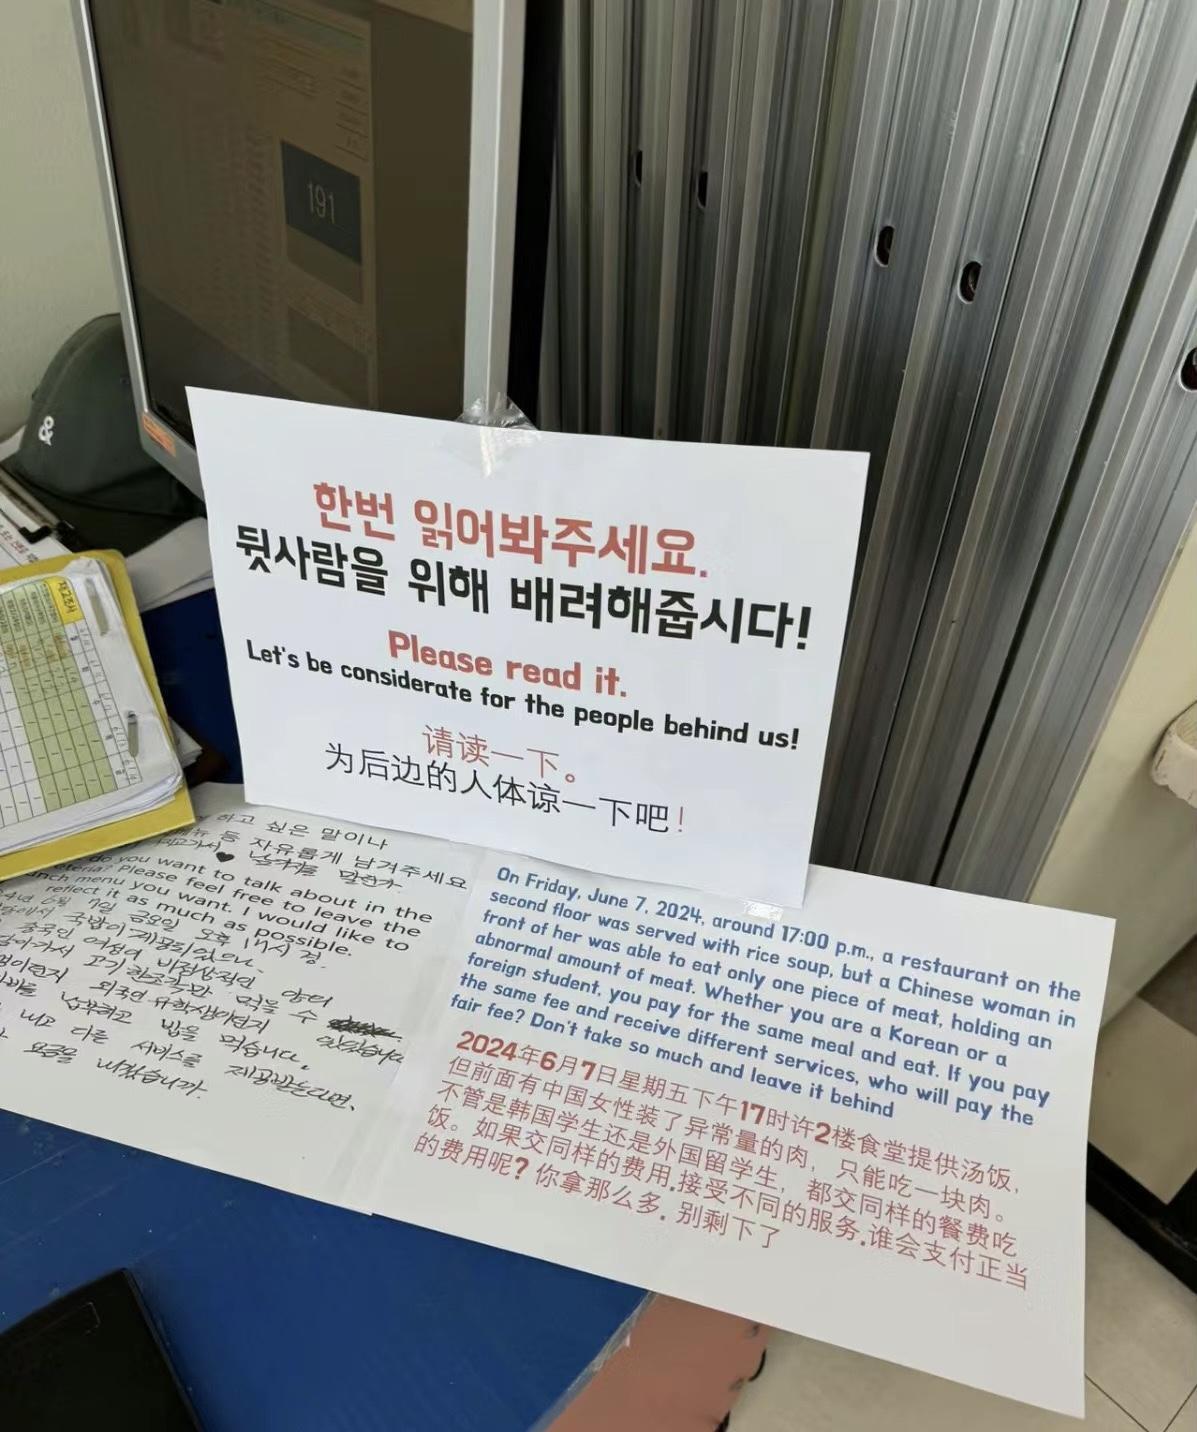 191
&
한번 읽어봐주세요.
뒷사람을 위해 배려해줍시다!
Please read it.
Let's be considerate for the people behind us!
请读一下。
为后边的人体谅一下吧!
하고 싶은 말이나
등 자유롭게 남겨주세요
do you want to talk about in the
Please feel free to leave the
menu you want. I would like to
reflect it as much as possible.
6월 7일 금요일 오후 17시 경.
국밥이 제공되었으나
중국인 여성이 비정상적인 양의
담아가서 고기 한조각만 먹을 수 있었습니다
외국인 유학생이던지
납부하고 밥을 먹습니다.
내고 다른 서비스를 제공받는다면,
요금을 내겠습니까.
On Friday, June 7, 2024, around 17:00 p.m., a restaurant on the
second floor was served with rice soup, but a Chinese woman in
front of her was able to eat only one piece of meat, holding an
abnormal amount of meat. Whether you are a Korean or a
foreign student, you pay for the same meal and eat. If you pay
the same fee and receive different services, who will pay the
fair fee? Don't take so much and leave it behind
2024年6月7日星期五下午17时许2楼食堂提供汤饭,
但前面有中国女性装了异常量的肉, 只能吃一块肉。
不管是韩国学生还是外国留学生, 都交同样的餐费吃
饭。如果交同样的费用.接受不同的服务.谁会支付正当
的费用呢? 你拿那么多. 别剩下了